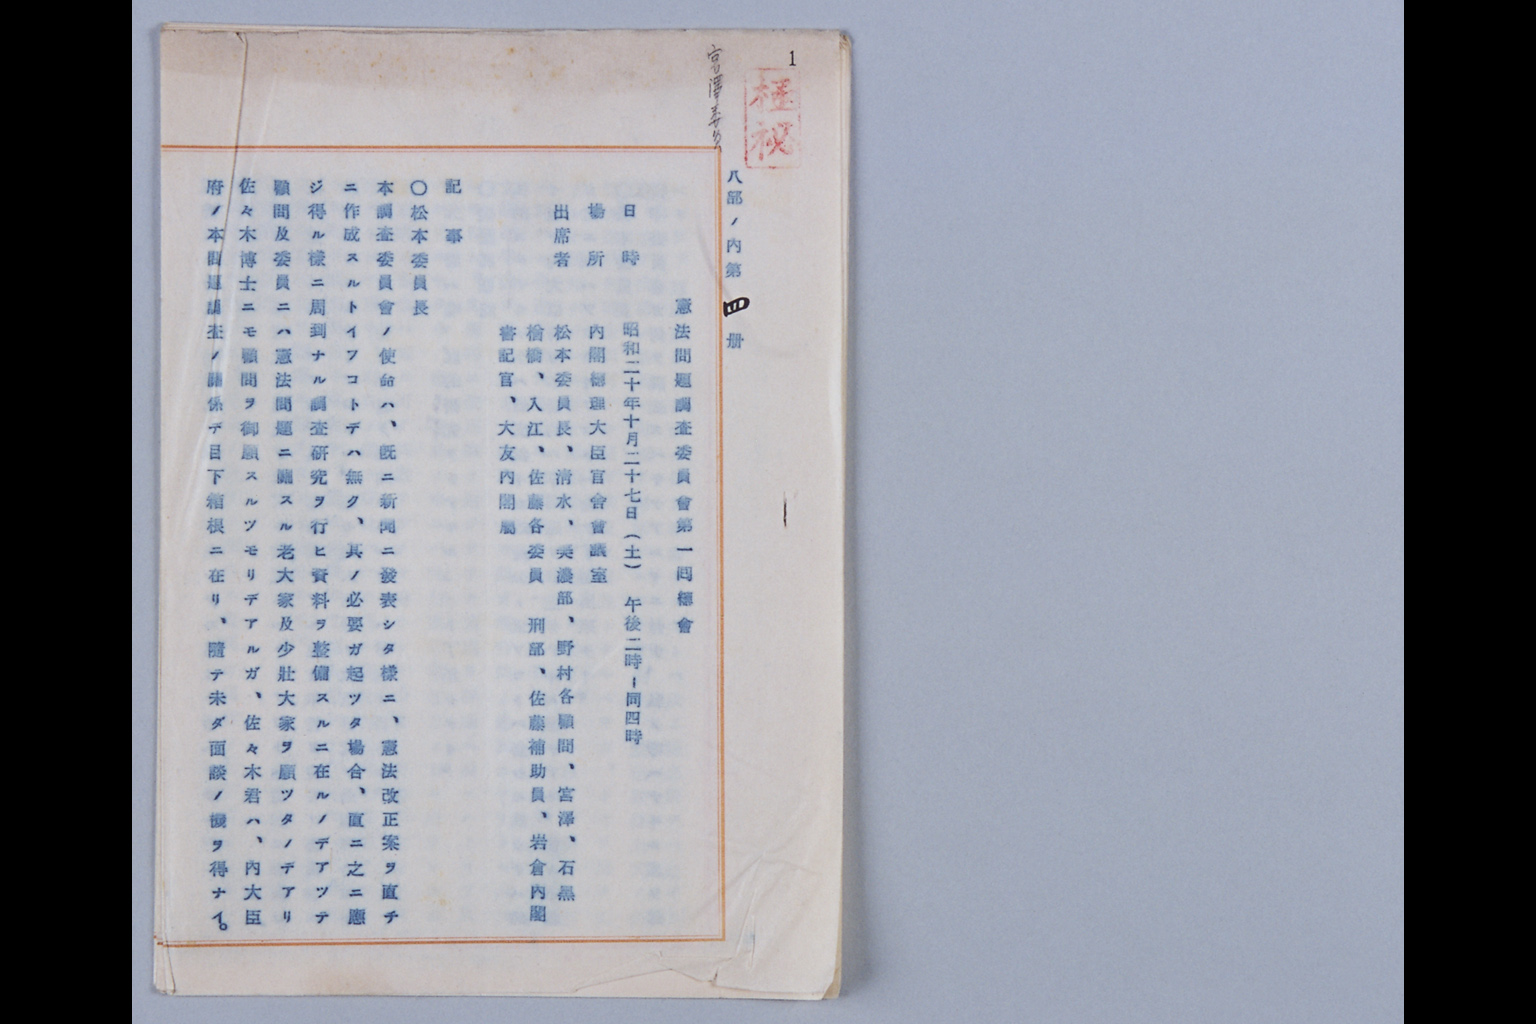 1
極秘
宮澤委員
八部ノ内第四册
憲法問題調査委員會第一囘總會
日時 昭和二十年十月二十七日(土) 午後二時―同四時
場所 內閣總理大臣官舍會議室
出席者 松本委員長、淸水、美濃部、野村各顧問、宮澤、石黑
楢橋、入江、佐藤各委員 刑部、佐藤補助員、岩倉內閣
書記官、大友內閣屬
記事
○松本委員長
本調査委員會ノ使命ハ、旣ニ新聞ニ發表シタ樣ニ、憲法改正案ヲ直チ
ニ作成スルトイフコトデハ無ク、其ノ必要ガ起ツタ場合、直ニ之ニ應
ジ得ル樣ニ周到ナル調査硏究ヲ行ヒ資料ヲ整備スルニ在ルノデアツテ
顧問及委員ニハ憲法問題ニ關スル老大家及少壯大家ヲ願ツタノデアリ
佐々木博士ニモ顧問ヲ御願スルツモリデアルガ、佐々木君ハ、內大臣
府ノ本問題調査ノ關係デ目下箱根ニ在リ、隨テ未ダ面談ノ機ヲ得ナイ。